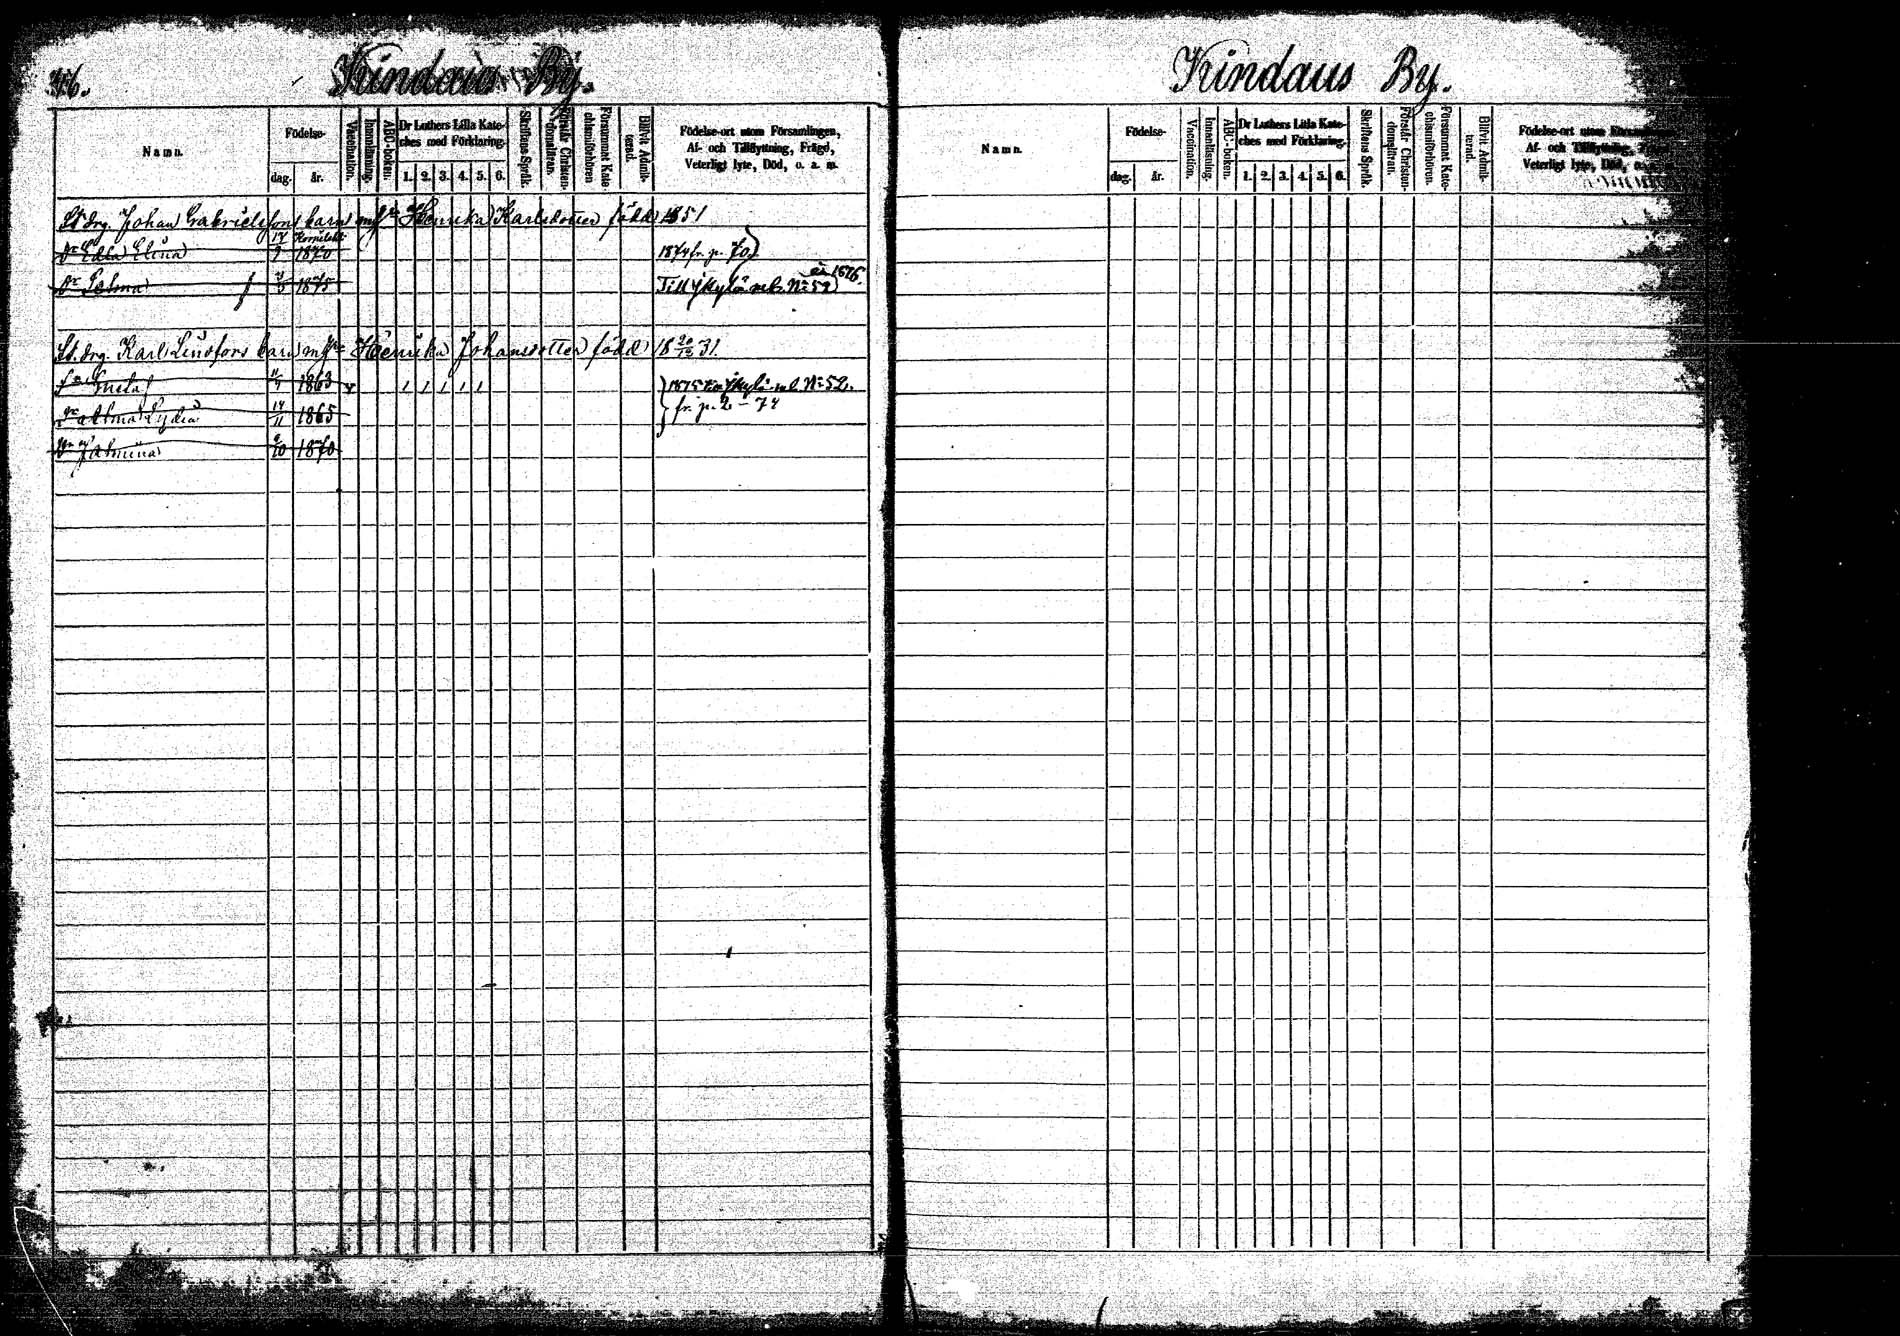 Krindaus By.
Namn.
Födelse-
dag.
år.
Vaccination.
Innanläsning.
ABC-boken.
Dr Luthers Lilla Kate-
ches med Förklaring.
1. 2. 3. 4. 5. 6.
Skriftens Språk.
Förstår Christen-
domsläran.
Försummat Kate-
chismiförhören
Blifvit Admit-
terad.
Födelse-ort utom Församlingen,
Af- och Tillflyttning, Frägd,
Veterligt lyte, Död, o. a. m.
St. drg. Johan Gabrielssons barn m/h Henrika Karlsdotter född 1851
Dr Edla Elina 17/9 1870 1874 fr. p. 70
Dr Selma 1875 Till Jkylä 1876
St. drg. Karl Lindfors barn m/h Henrika Johansdotter född 18 20/12 31.
Sn Gustaf 1863 1 1 1 1 1 1875 Jkylä Nº 52.
Dr Alma Lydia 14/11 1865 fr. p. 2 - 74
Dr Jalmina 1870
Krindaus By.
Namn.
Födelse-
dag.
år.
Vaccination.
Innanläsning.
ABC-boken.
Dr Luthers Lilla Kate-
ches med Förklaring.
1. 2. 3. 4. 5. 6.
Skriftens Språk.
Förstår Christen-
domsläran.
Försummat Kate-
chismiförhören.
Blifvit Admit-
terad.
Födelse-ort utom
Af- och Tillflyttning,
Veterligt lyte, Död, o.